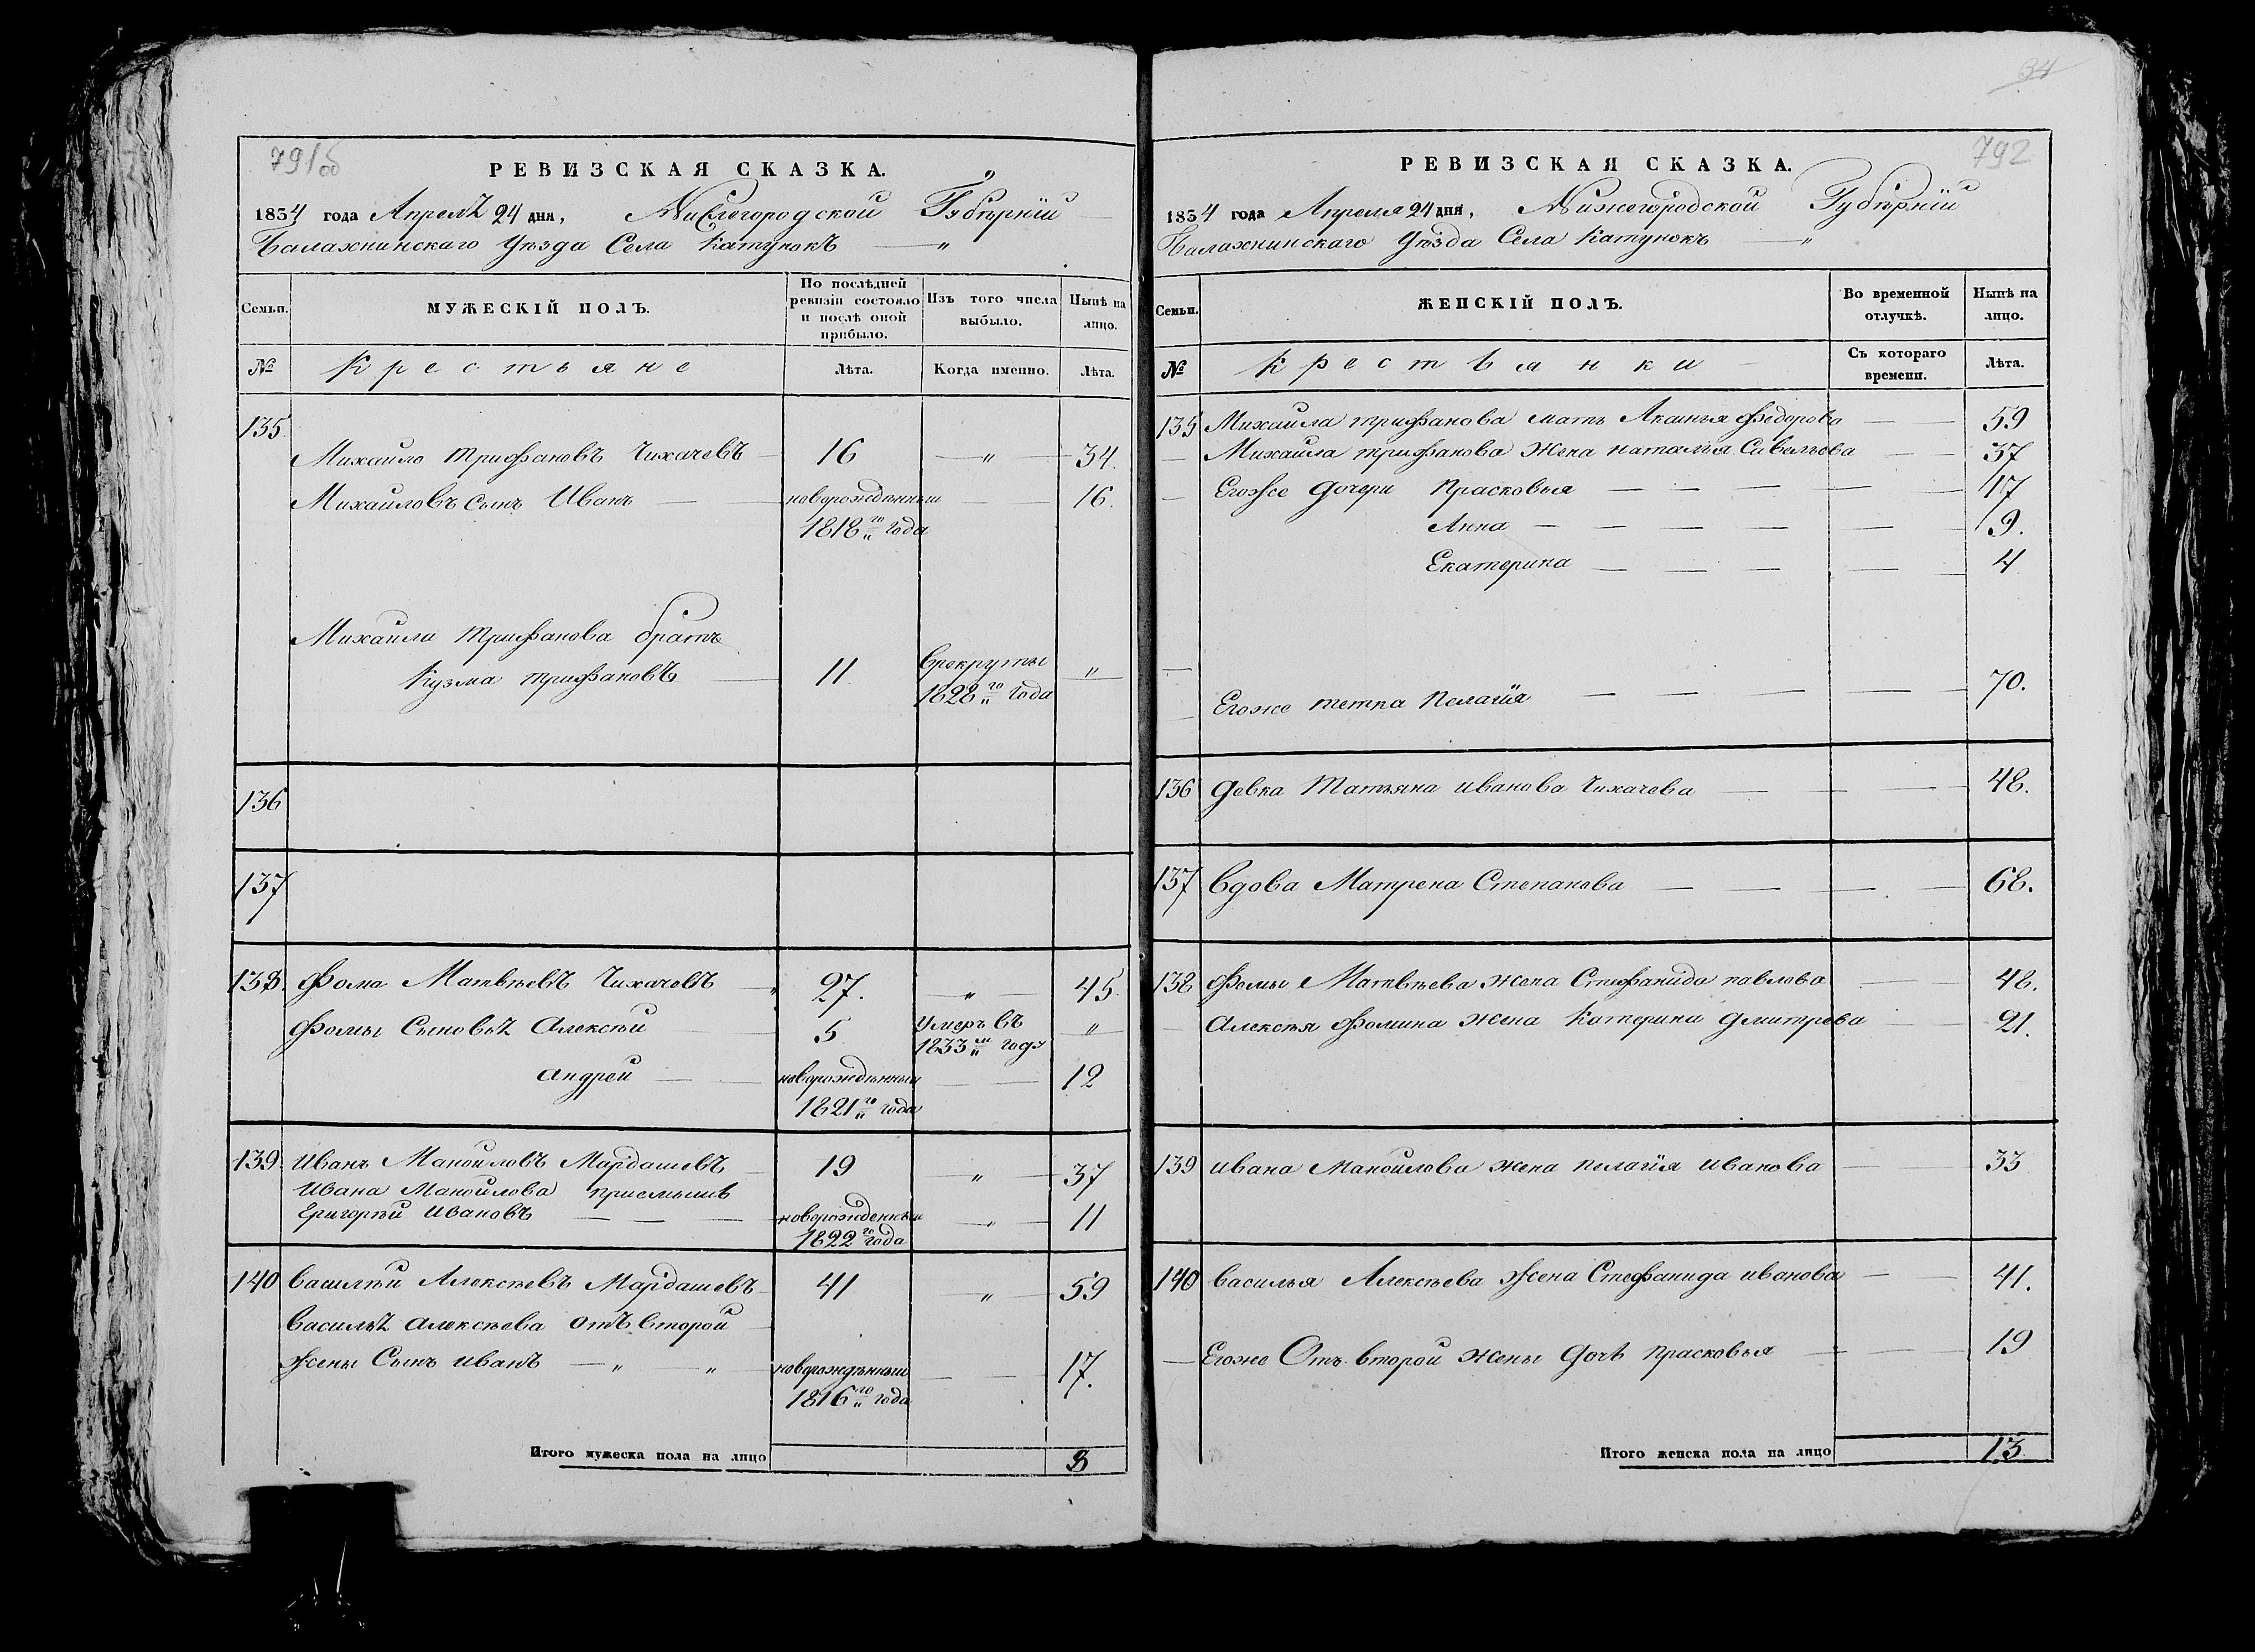 791об
РЕВИЗСКАЯ СКАЗКА.
1834 года Апреля 24 дня, Нижегородской Губерніи
Балахнинскаго Уѣзда Села Катунокъ — "
Семьи. МУЖЕСКІЙ ПОЛЪ. По послѣдней ревизіи состояло и послѣ оной прибыло. Изъ того числа выбыло. Нынѣ на лицо.
№ Крестьяне Лѣта. Когда именно. Лѣта.
135
Михайло Трифановъ Чихачевъ 16 " 34.
Михайловъ сынъ Иванъ новорожденный 16.
1818го года
Михайла Трифанова братъ
Кузма Трифановъ 11 Врекруты "
1828го года
136
137
138. Фома Матвѣевъ Чихачевъ 27. " 45.
Фомы Сыновья Алексѣй 5 Умеръ въ "
1833м году
Андрей новорожденный 12
1821го года
139. Иванъ Манойловъ Мардашевъ 19 " 37
Ивана Манойлова приемышъ
Григорѣй Ивановъ новорожденный " 11
1822го года
140 Василѣй Алексѣевъ Мардашевъ 41 " 59
Василья Алексѣева отъ второй
жены Сынъ Иванъ — " — " новорожденный 17.
1816го года
Итого мужеска пола на лицо 8
34
792
РЕВИЗСКАЯ СКАЗКА.
1834 года Апреля 24 дня, Нижегородской Губерніи
Балахнинскаго Уѣзда Села Катунокъ — "
Семьи. ЖЕНСКІЙ ПОЛЪ. Во временной отлучкѣ. Нынѣ на лицо.
№ Крестьянки Съ котораго времени. Лѣта.
135 Михайла трифанова мать Акинья Федорова 59
Михайла трифанова жена наталья Савельева 37
Егоже дочери Прасковья 17
Анна 9.
Екатерина 4
Егоже тетка Пелагія 70.
136 девка Татьяна иванова Чихачева 48.
137 вдова Матрена Степанова 68.
138 Фомы Матвѣева жена Стефанида павлова 48.
Алексѣя Фомина жена Катерина дмитрева 21.
139 ивана Манойлова жена пелагія иванова 33
140 василья Алексѣева жена Стефанида иванова 41.
Егоже Отъ второй жены дочь прасковья 19
Итого женска пола на лицо 13